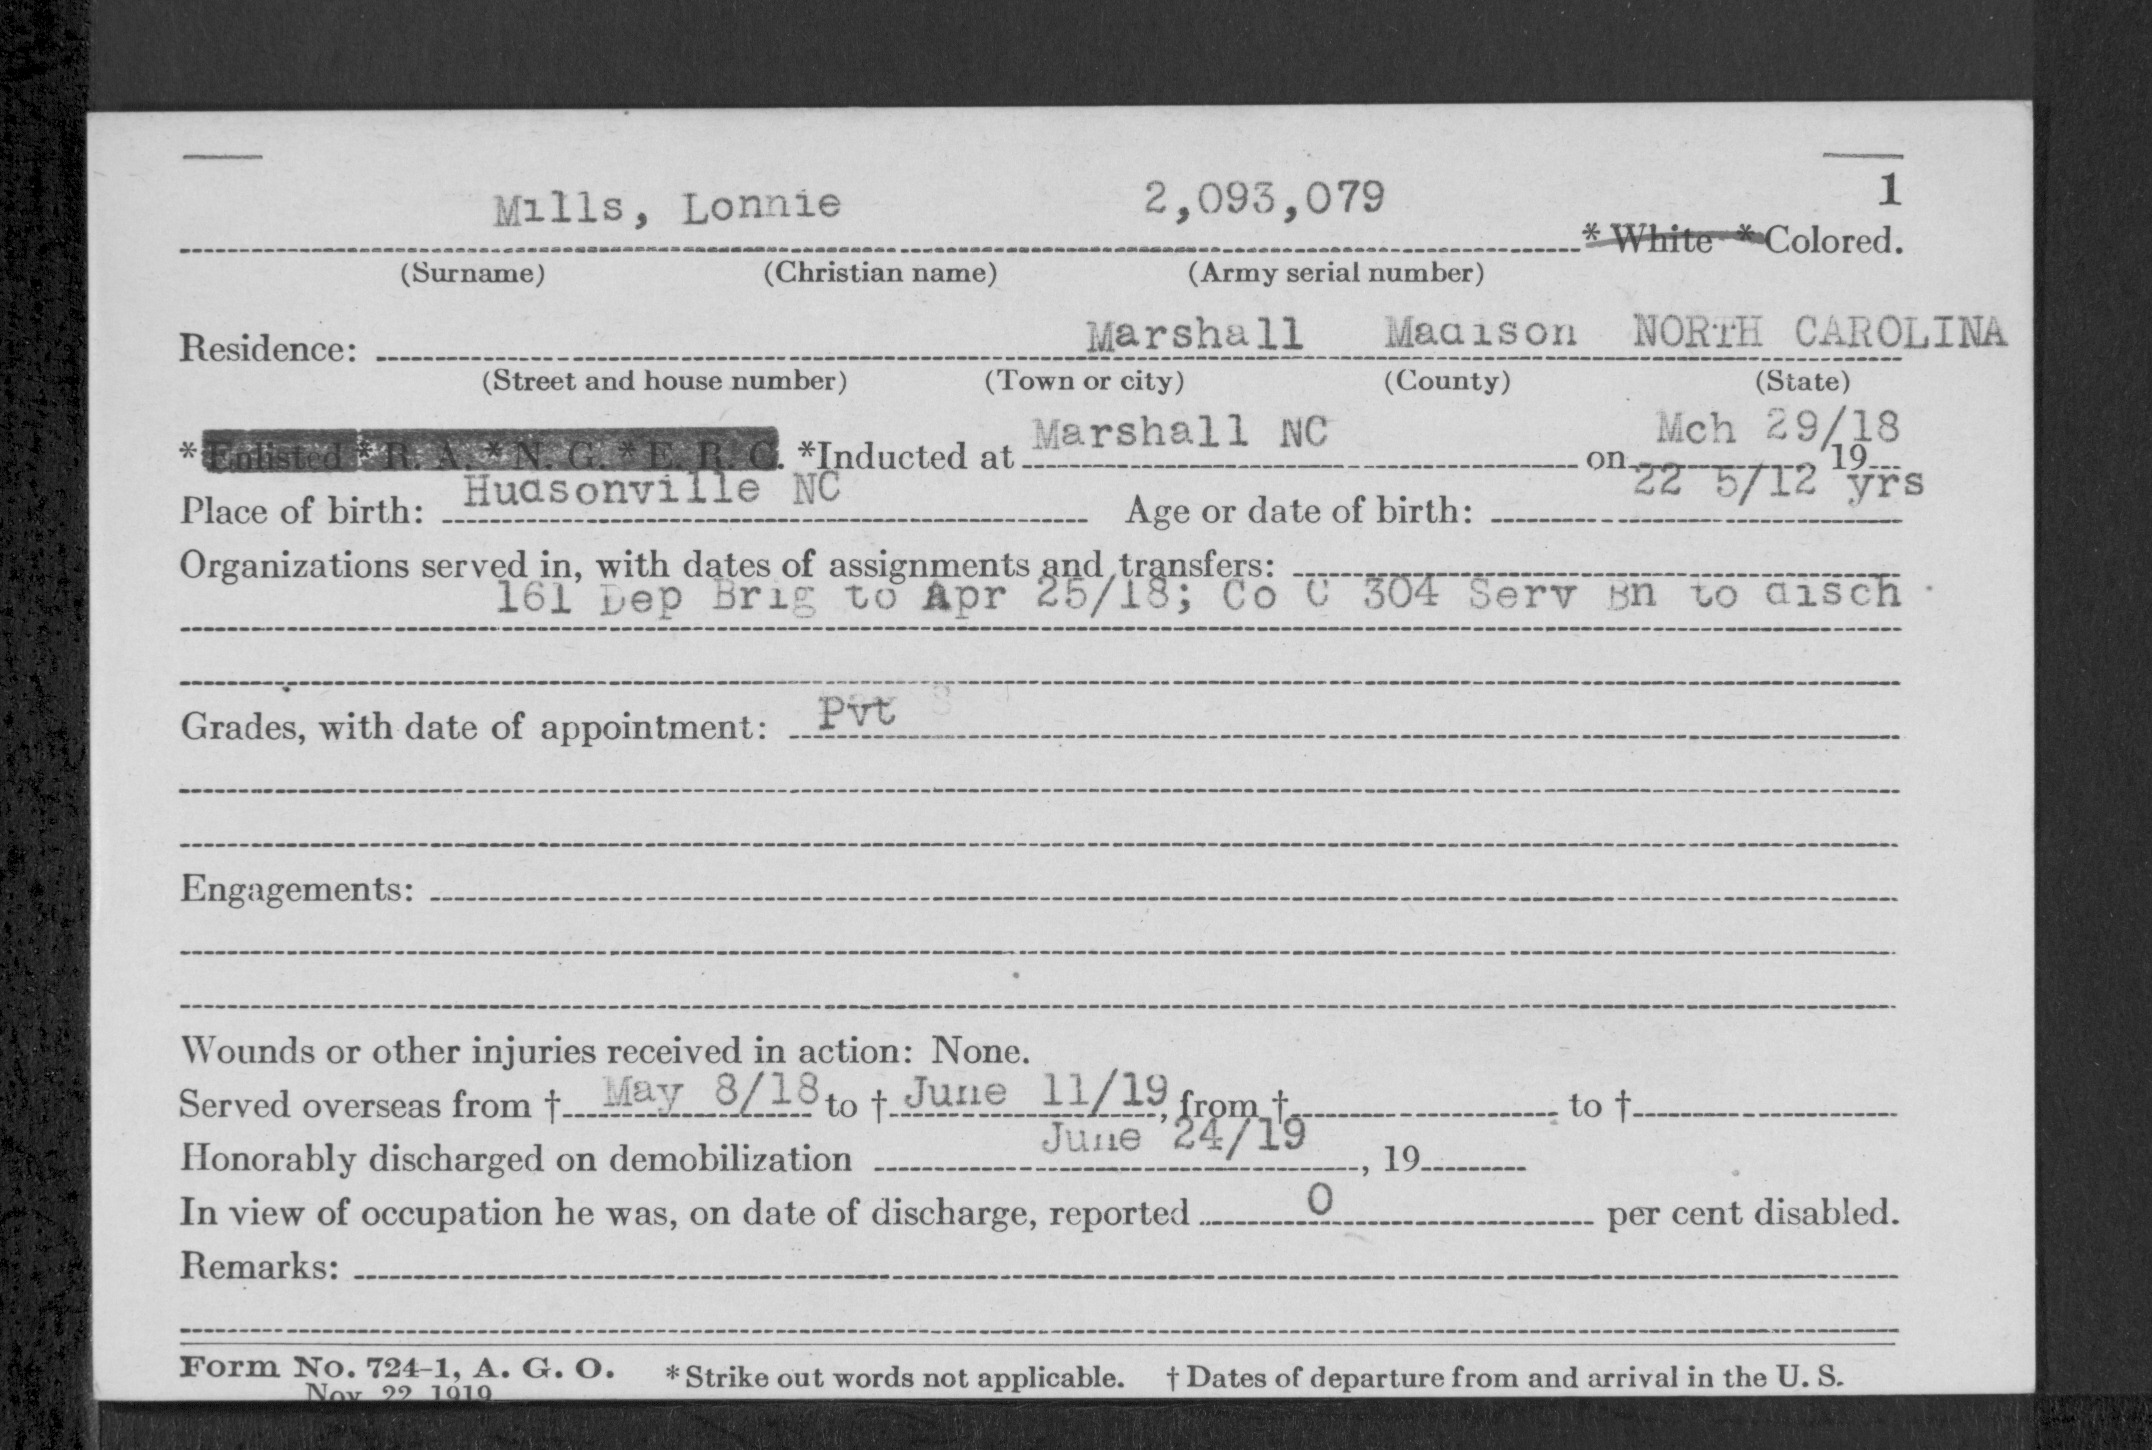 1
Mills, Lonnie 2,093,079 * White * Colored.
(Surname) (Christian name) (Army serial number)
Residence: Marshall Madison NORTH CAROLINA
(Street and house number) (Town or city) (County) (State)
* Enlisted * R. A. * N. G. * E. R. C. *Inducted at Marshall NC on Mch 29/18 19
Place of birth: Hudsonville NC Age or date of birth: 22 5/12 yrs
Organizations served in, with dates of assignments and transfers:
161 Dep Brig to Apr 25/18; Co C 304 Serv Bn to disch
Grades, with date of appointment: Pvt
Engagements:
Wounds or other injuries received in action: None.
Served overseas from † May 8/18 to † June 11/19, from † to †
Honorably discharged on demobilization June 24/19, 19
In view of occupation he was, on date of discharge, reported 0 per cent disabled.
Remarks:
Form No. 724-1, A. G. O. * Strike out words not applicable. † Dates of departure from and arrival in the U. S.
Nov. 22, 1919